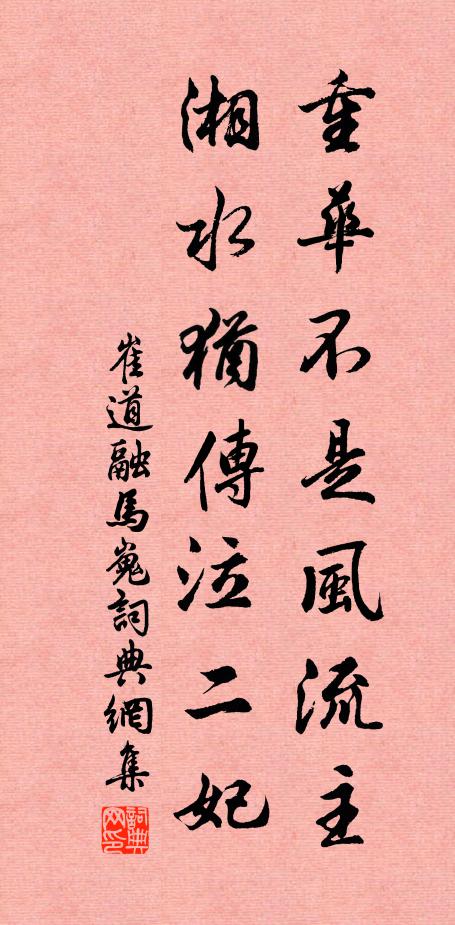 重華不是風流主
湘水猶傳泣二妃
崔道融馬嵬詞典網集
詞典网印